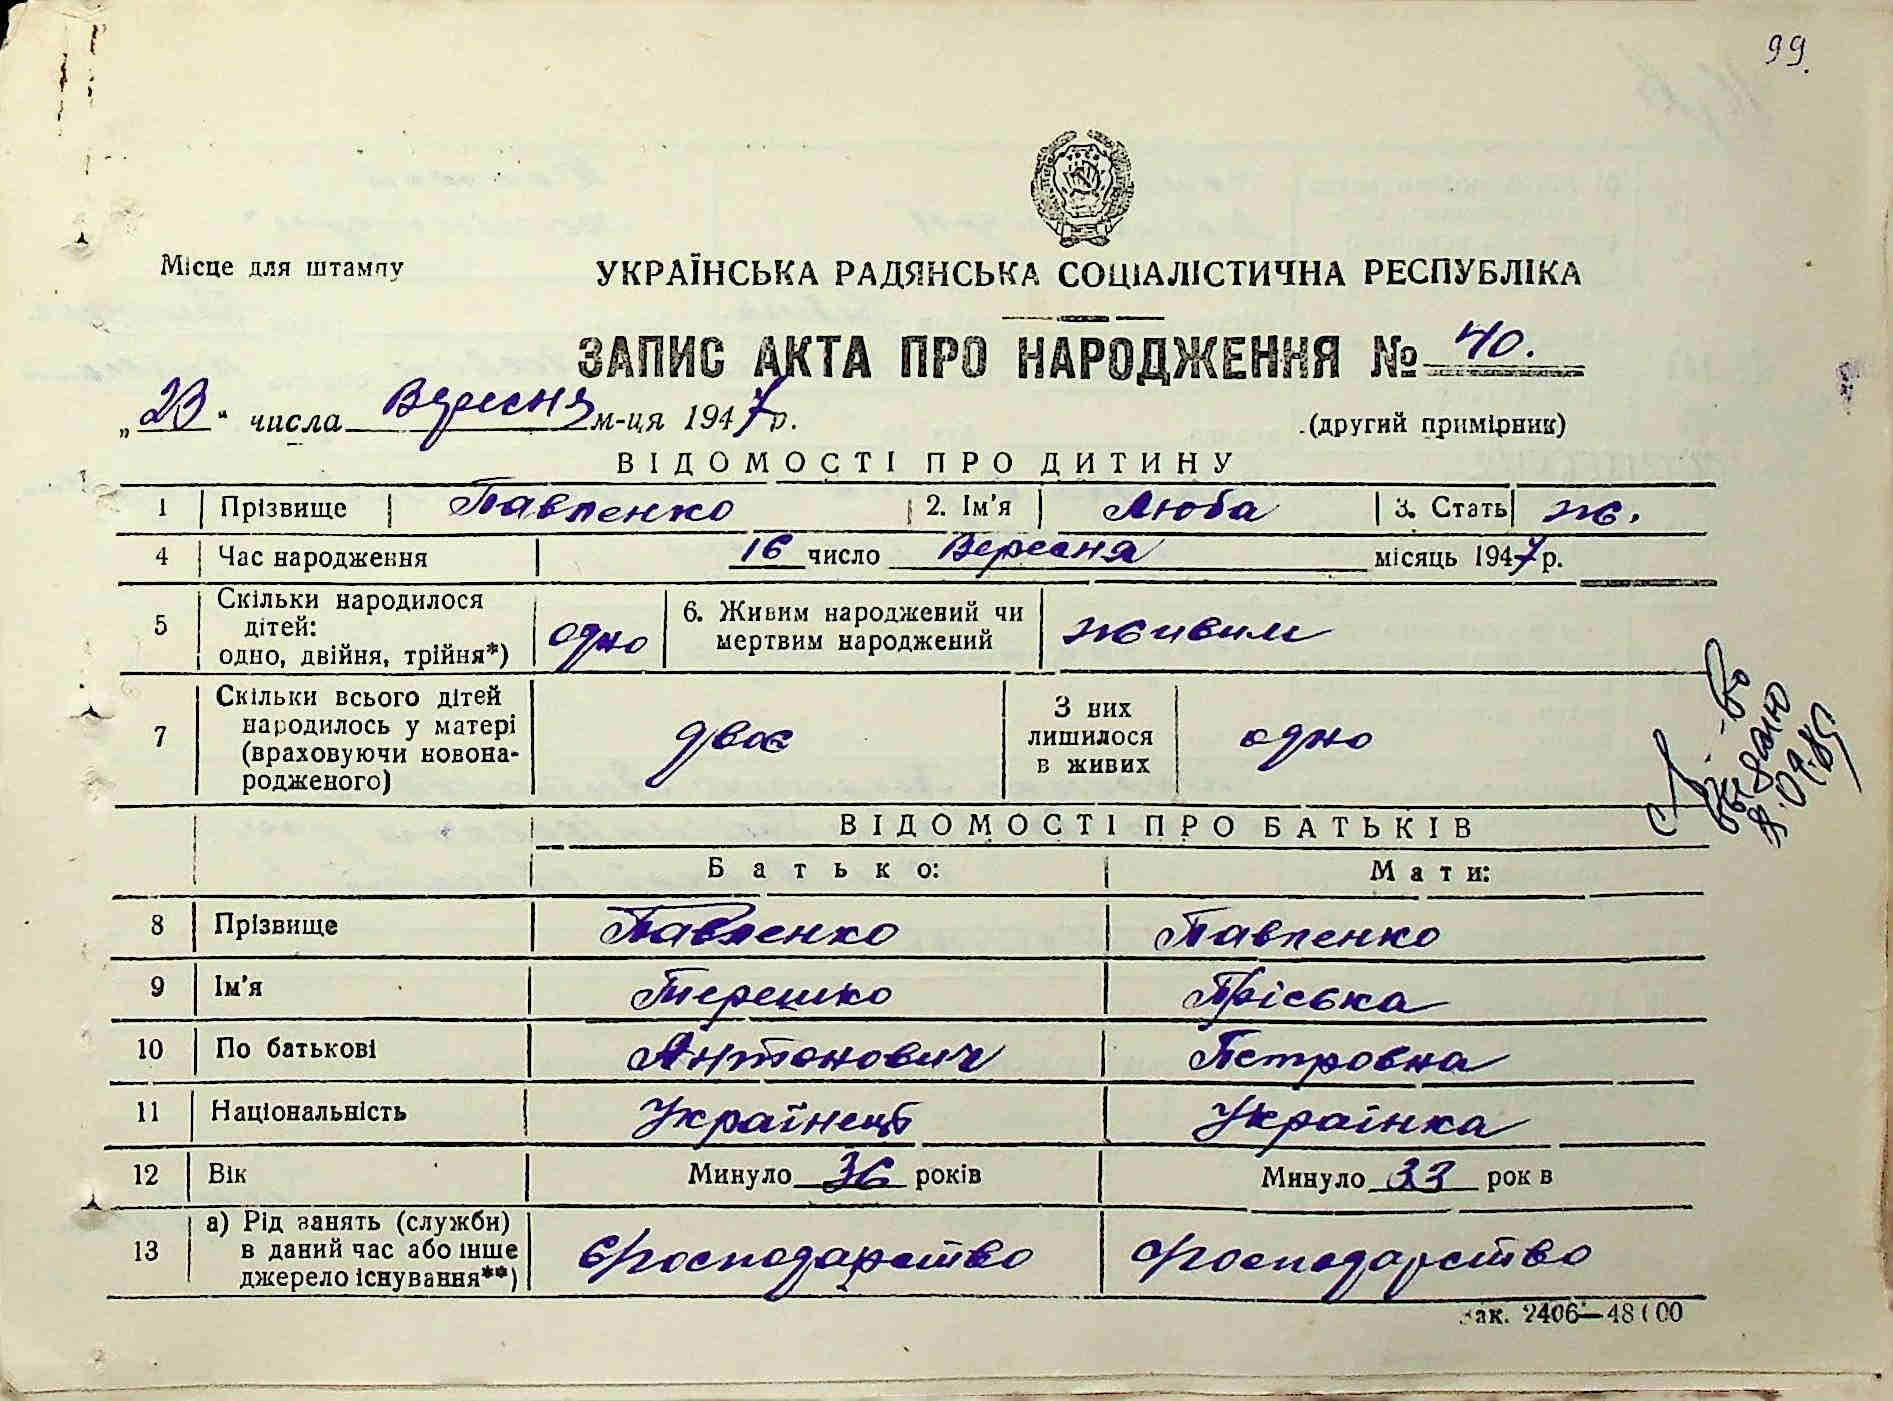 99.
Місце для штампу
УКРАЇНСЬКА РАДЯНСЬКА СОЦІАЛІСТИЧНА РЕСПУБЛІКА
ЗАПИС АКТА ПРО НАРОДЖЕННЯ № 40.
„23" числа Вересня м-ця 1947 р.
(другий примірник)
ВІДОМОСТІ ПРО ДИТИНУ
1 Прізвище Павленко 2. Ім'я Люба 3. Стать ж.
4 Час народження 16 число Вересня місяць 1947 р.
5 Скільки народилося дітей: одно, двійня, трійня*) одно 6. Живим народжений чи мертвим народжений живим
7 Скільки всього дітей народилось у матері (враховуючи новонародженого) двоє З них лишилося в живих одно
ВІДОМОСТІ ПРО БАТЬКІВ
Батько: Мати:
8 Прізвище Павленко Павленко
9 Ім'я Терешко Пріська
10 По батькові Антонович Петровна
11 Національність Українець Українка
12 Вік Минуло 36 років Минуло 33 рок в
13 а) Рід занять (служби) в даний час або інше джерело існування**) Господарство Господарство
Зак. 2406—48000